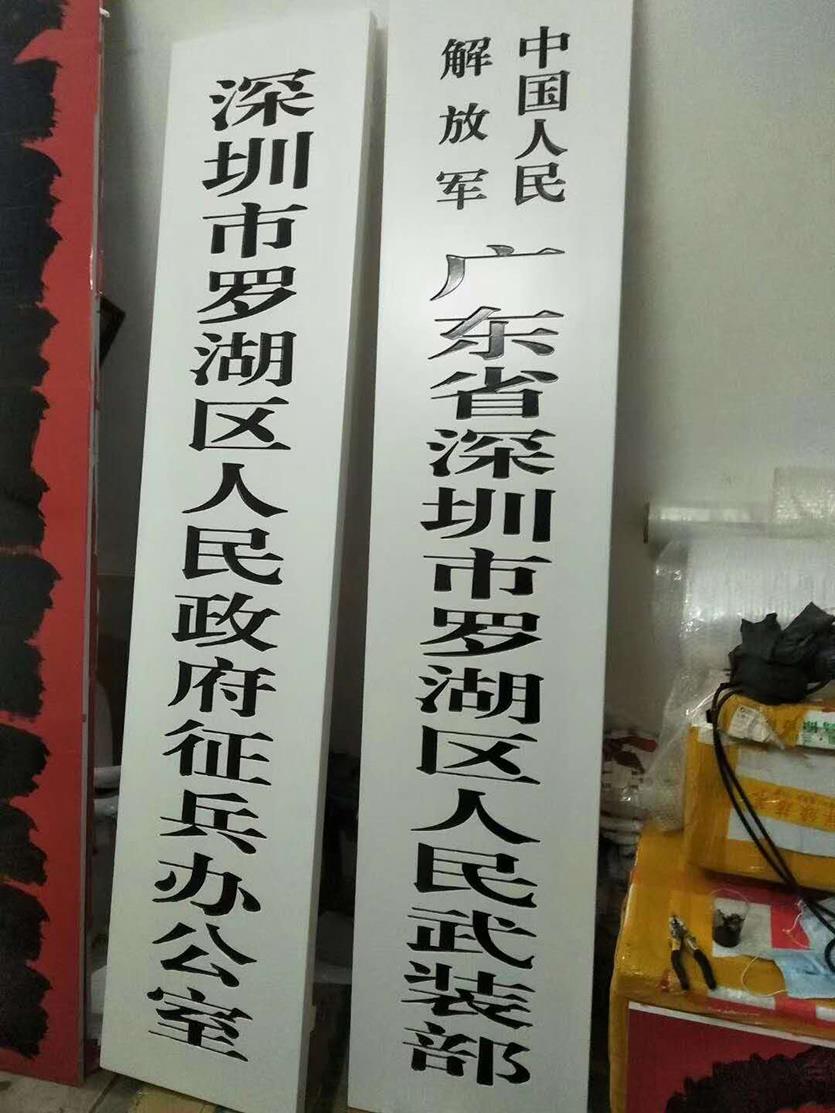 深圳市罗湖区人民政府征兵办公室
中国人民
解放军
广东省深圳市罗湖区人民武装部